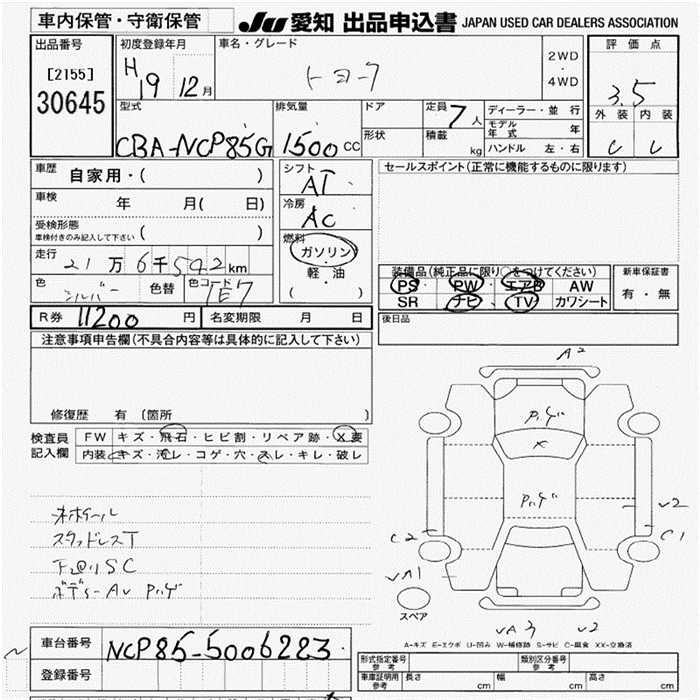 車内保管・守衛保管
JU 愛知 出品申込書 JAPAN USED CAR DEALERS ASSOCIATION
出品番号
[2155]
30645
初度登録年月
H 19 12 月
車名・グレード
トヨタ
2WD
・
4WD
評価点
3.5
外装 内装
C C
型式
CBA-NCP85G
排気量
1500 CC
ドア
形状
定員
7 人
積載
kg
ディーラー・並 行
モデル年式 年
ハンドル 左・右
車歴
自家用・( )
車検
年 月( 日)
受検形態
車検付きのみ記入して下さい ( )
走行
21 万 6 千 592 km
色
シルバー
色替
色コード
1E7
シフト
AT
冷房
AC
燃料
ガソリン
・
軽・油
( )
セールスポイント(正常に機能するものに限ります)
装備品(純正品に限り○をつけてください)
PS PW エアB AW
SR ナビ TV カワシート
新車保証書
有・無
R券 11200 円
名変期限 月 日
後日品
注意事項申告欄(不具合内容等は具体的に記入して下さい)
修復歴 有 (箇所 )
検査員記入欄
FW キズ・飛石・ヒビ割・リペア跡・X要
内装 キズ・汚レ・コゲ・穴・スレ・キレ・破レ
ホイール
スタッドレスT
SC
A2
X
C2
2
C1
A1
スペア
A3
2
A-キズ E-エクボ U-凹み W-補修跡 S-サビ C-腐食 XX-交換済
車台番号
NCP85-5006223
登録番号
形式指定番号
参考
類別区分番号
参考
車庫証明用
参考
長さ cm
幅 cm
高さ cm